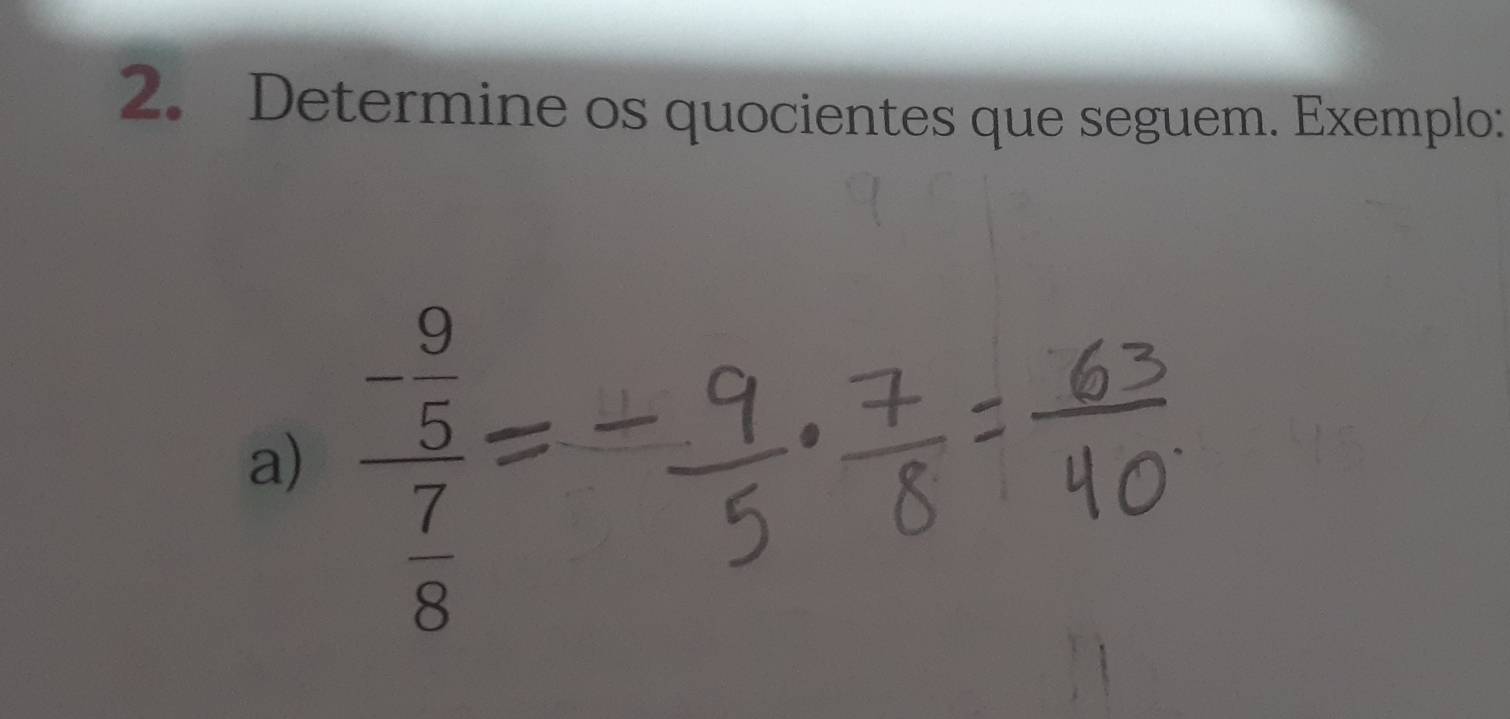 2. Determine os quocientes que seguem. Exemplo:
a) (-9/5)/(7/8) = -9/5 . 7/8 = 63/40